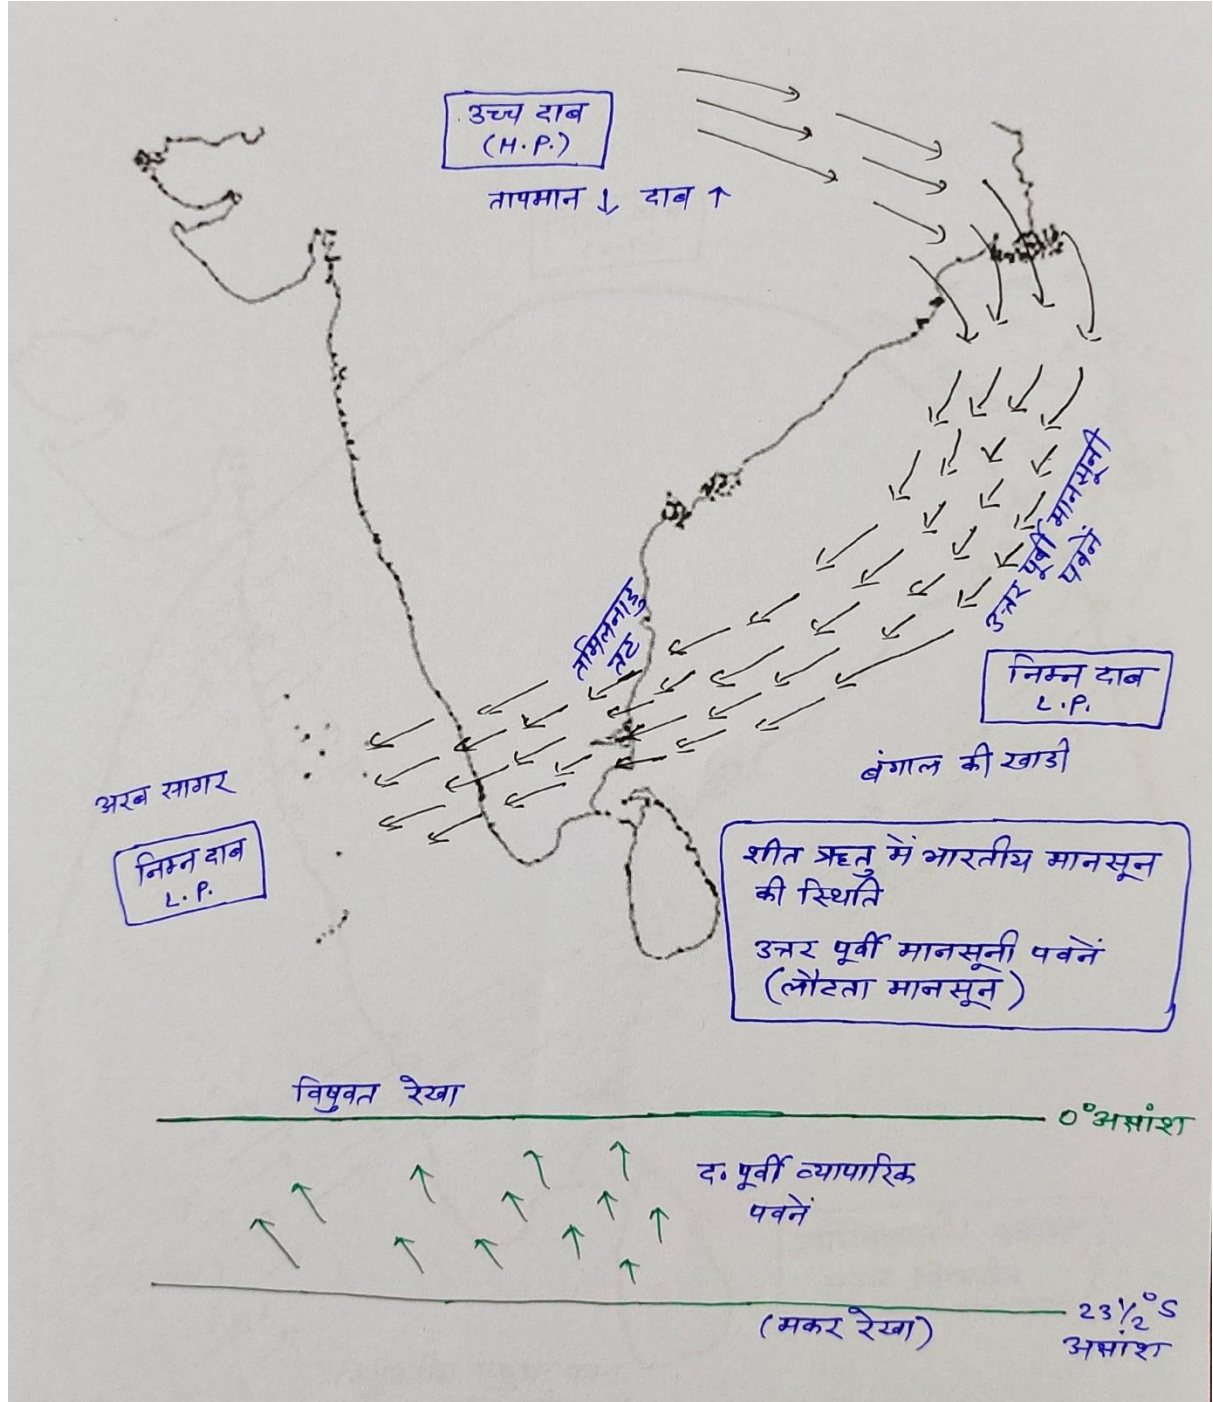 उच्च दाब
(H.P.)
तापमान ↓ दाब ↑
उत्तर पूर्वी मानसूनी
पवनें
तमिलनाडु
तट
निम्न दाब
L.P.
बंगाल की खाडी
अरब सागर
निम्न दाब
L.P.
शीत ऋतु में भारतीय मानसून
की स्थिति
उत्तर पूर्वी मानसूनी पवनें
(लौटता मानसून)
विषुवत रेखा
0° अक्षांश
द॰ पूर्वी व्यापारिक
पवनें
23½° S
अक्षांश
(मकर रेखा)